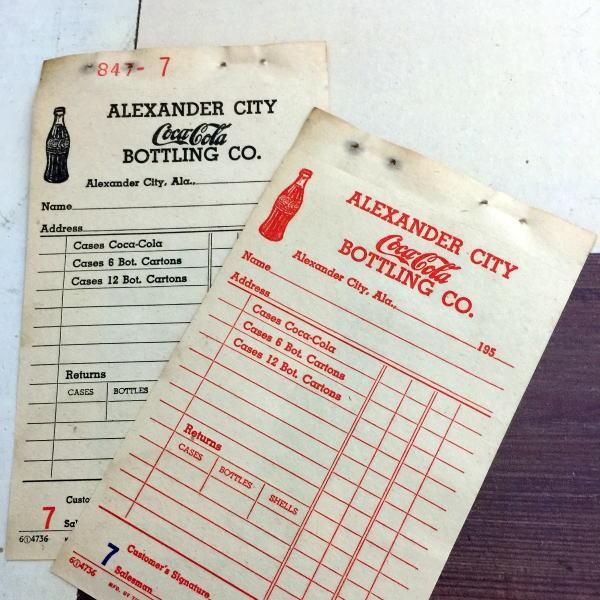 847- 7
ALEXANDER CITY
Coca-Cola
BOTTLING CO.
Alexander City, Ala.,
Name
Address
Cases Coca-Cola
Cases 6 Bot. Cartons
Cases 12 Bot. Cartons
Returns
CASES BOTTLES
7
6①4736
ALEXANDER CITY
Coca-Cola
BOTTLING CO.
Alexander City, Ala., 195
Name
Address
Cases Coca-Cola
Cases 6 Bot. Cartons
Cases 12 Bot. Cartons
Returns
CASES BOTTLES SHELLS
7 Customer's Signature
Salesman
6①4736 MFD. BY